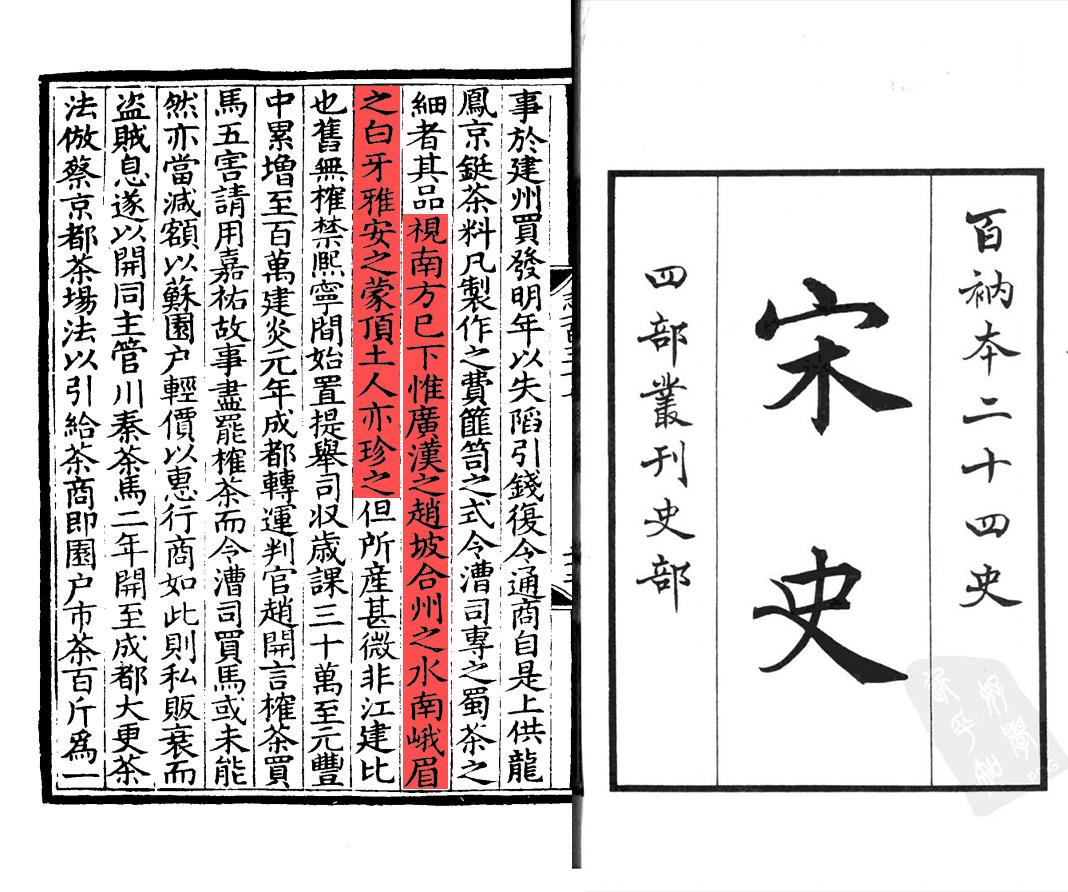 百衲本二十四史
宋史
四部叢刊史部
事於建州買發明年以失陷引錢復令通商自是上供龍
鳳京鋌茶料凡製作之費篚笥之式令漕司專之蜀茶之
細者其品視南方已下惟廣漢之趙坡合州之水南峨眉
之白牙雅安之蒙頂土人亦珍之但所產甚微非江建比
也舊無榷禁熙寧間始置提舉司収歲課三十萬至元豐
中累增至百萬建炎元年成都轉運判官趙開言榷茶買
馬五害請用嘉祐故事盡罷榷茶而令漕司買馬或未能
然亦當減額以蘇園户輕價以惠行商如此則私販衰而
盜賊息遂以開同主管川秦茶馬二年開至成都大更茶
法倣蔡京都茶場法以引給茶商即園户市茶百斤爲一